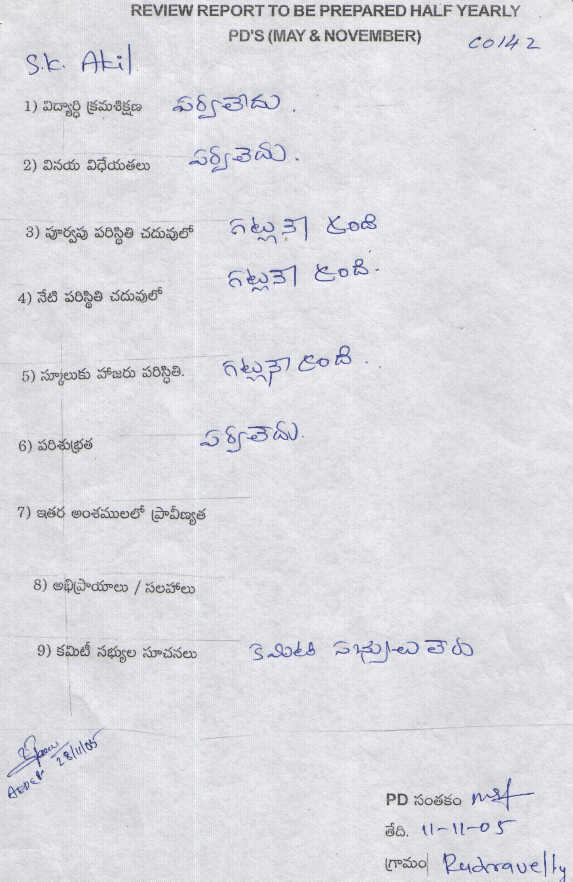 REVIEW REPORT TO BE PREPARED HALF YEARLY
PD'S (MAY & NOVEMBER)
C0142
S.k. Akil
1) విద్యార్ధి క్రమశిక్షణ పర్వాలేదు.
2) వినయ విధేయతలు పర్వలేదు.
3) పూర్వపు పరిస్థితి చదువులో గట్లనే ఉంది
4) నేటి పరిస్థితి చదువులో గట్లనే ఉంది.
5) స్కూలుకు హాజరు పరిస్థితి. గట్లనే ఉంది.
6) పరిశుభ్రత పర్వలేదు.
7) ఇతర అంశములలో ప్రావీణ్యత
8) అభిప్రాయాలు / సలహాలు
9) కమిటీ సభ్యుల సూచనలు కమిటి సభ్యులు లేరు
28/11/05
PD సంతకం
తేది. 11-11-05
గ్రామం Rudravelly